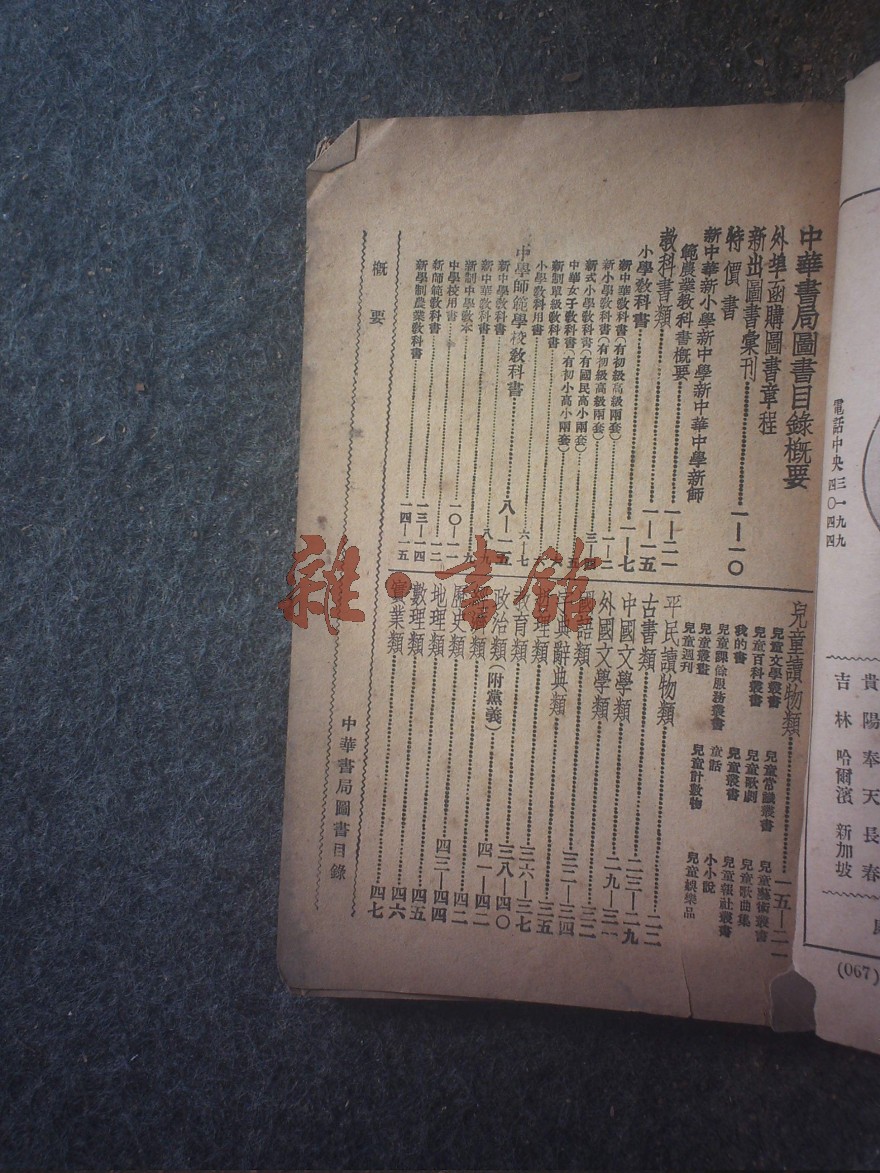 中華書局圖書目錄概要
外埠函購圖書章程
新出圖書彙刊 一—一〇
特價書
新中華新小學新中學新中華中學新師
範農業教科書概要 一—二一
教科書類 一—一五
小學教科書 一—七
新中華教科書(有初級高級兩套)
新小學教科書(有初級高級兩套) 一—二
新式小學教科書(有國民高小兩套) 三—四
中華女子教科書(有初小高小兩套) 五
新制單級教科書 六
小學教科用書 六—七
中學師範學校教科書 八—一五
新中學教科書 八
新中華教科書 九
新制中學教本 九
中學校用書 一〇—一一
新師範教科書 一二
新學制農業教科書 一三—一四
一四—一五
概要
兒童讀物類 一五—二一
兒童文學叢書 兒童常識叢書 兒童藝術叢書
兒童百科叢書 兒童歌劇 兒童歌曲集
我的書 兒童叢書 兒童報社叢書
兒童課餘服務叢書 童話 小小說
兒童叢畫 兒童計數物 兒童娛樂品
兒童週刊
平民讀物類 二二
古書類 二三—二九
中國文學類 二九—三一
外國文學類 三二
國語類 三二—三四
字典辭典類 三五
類 三六—三七
教育類 三八—四〇
政治類(附黨義) 四一—四二
類 四二
歷史類 四三—四四
地理類 四五
數理類 四六
實業類 四七
中華書局圖書目錄
雜·書館
電話中央三一九九
四〇四四
貴陽 奉天 長春
吉林 哈爾濱 新加坡
(067)